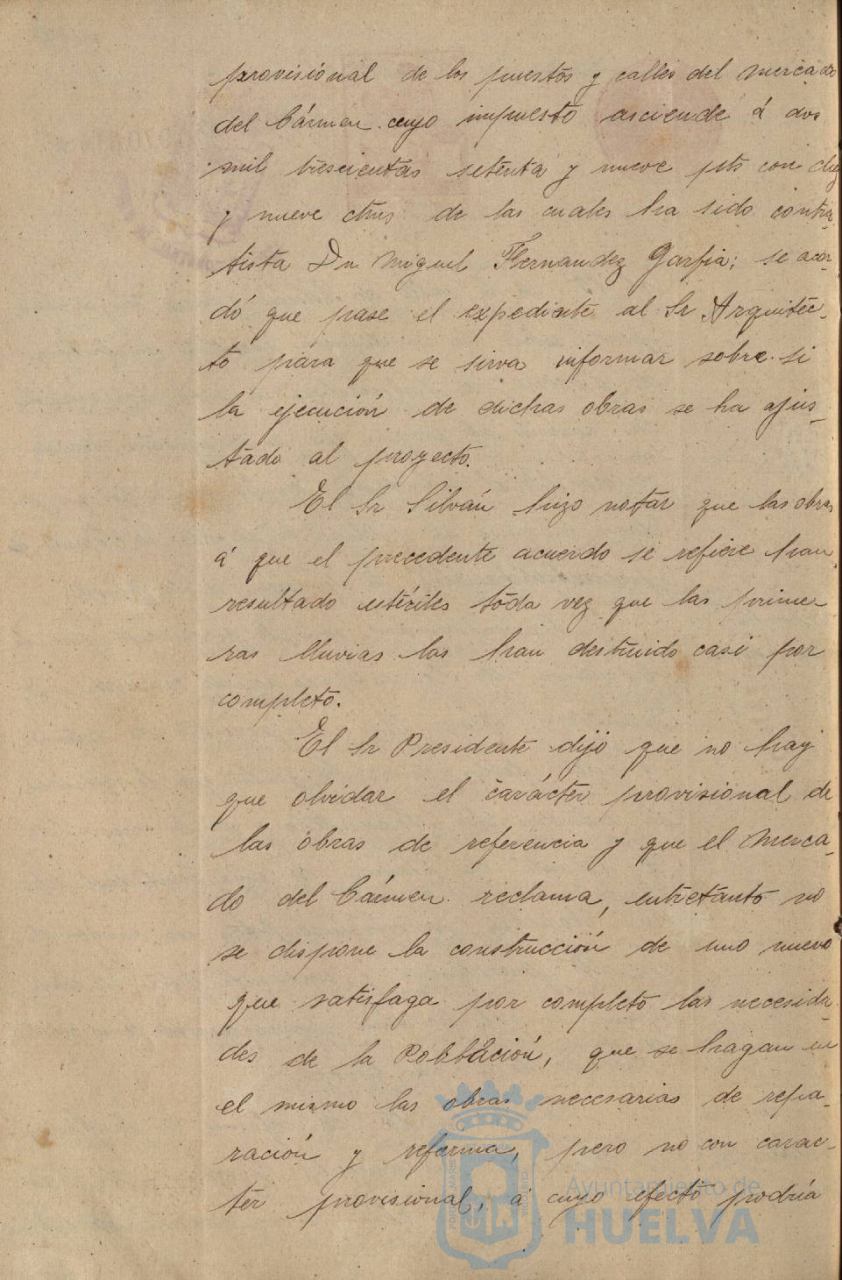 provisional de los puestos y calles del Mercado
del Cármen cuyo impuesto asciende á dos
mil trescientas setenta y nueve pts con diez
y nueve ctms de las cuales ha sido contra-
tista Dn Miguel Fernandez Garfia; se acor-
dó que pase el expediente al Sr Arquitec-
to para que se sirva informar sobre si
la ejecución de dichas obras se ha ajus-
tado al proyecto.
El Sr Silván hizo notar que las obras
á que el precedente acuerdo se refiere han
resultado estériles toda vez que las prime-
ras lluvias las han destruido casi por
completo.
El Sr Presidente dijo que no hay
que olvidar el carácter provisional de
las obras de referencia y que el Merca-
do del Cármen reclama, entretanto no
se dispone la construcción de uno nuevo
que satisfaga por completo las necesida-
des de la Población, que se hagan en
el mismo las obras necesarias de repa-
ración y reforma, pero no con carac-
ter provisional, á cuyo efecto podría
Ayuntamiento de
HUELVA